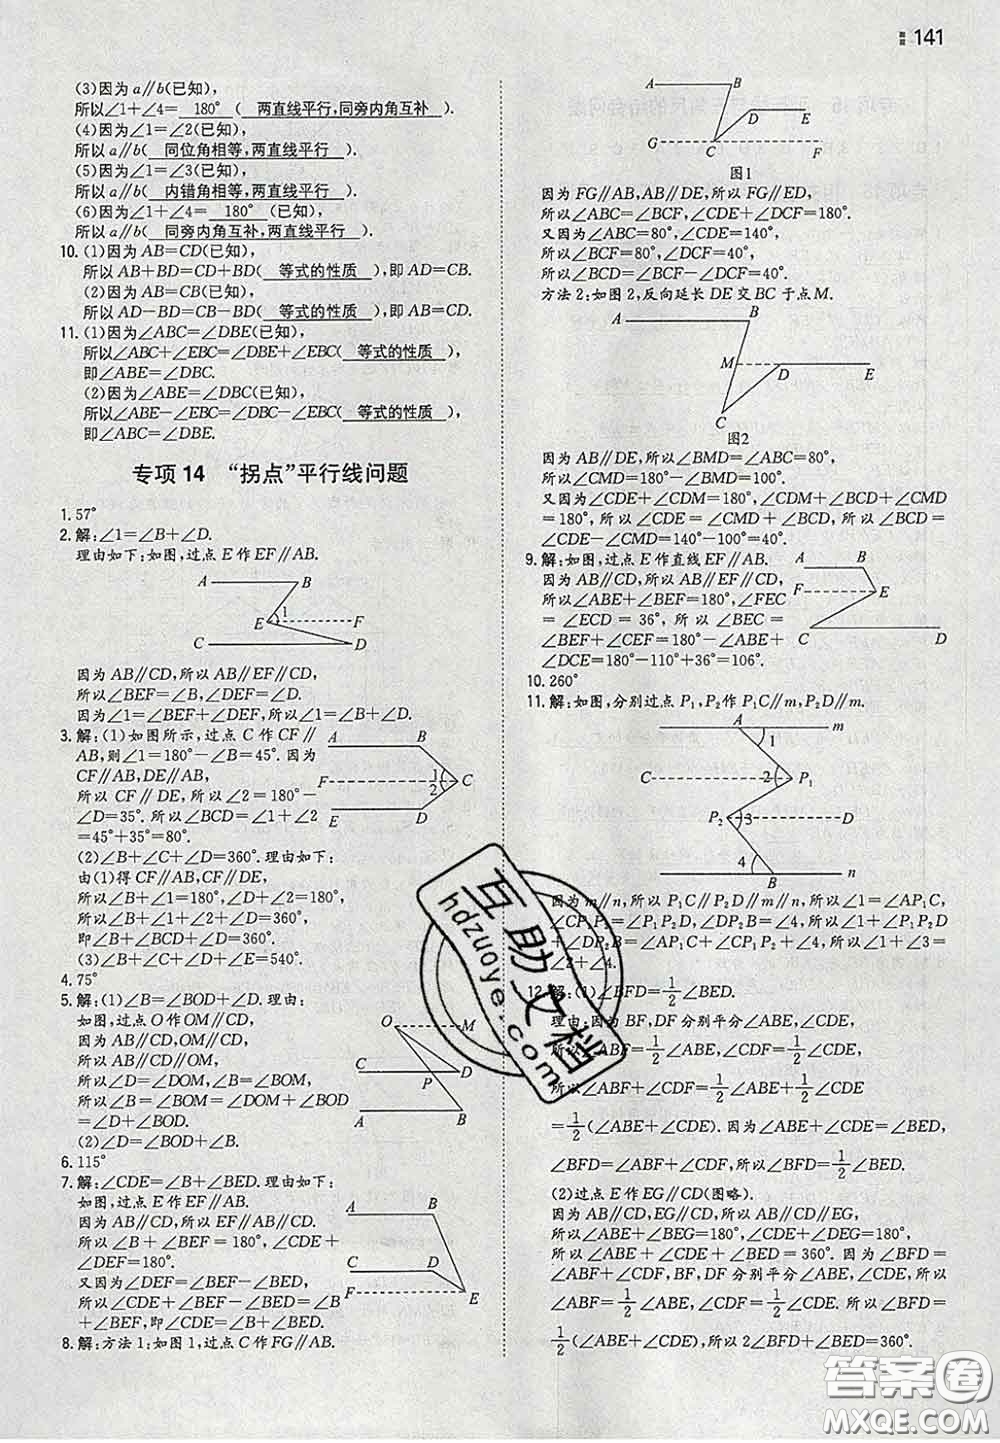 141
(3)因为 a∥b(已知),
所以∠1+∠4= 180° ( 两直线平行,同旁内角互补 ).
(4)因为∠1=∠2(已知),
所以 a∥b( 同位角相等,两直线平行 ).
(5)因为∠1=∠3(已知),
所以 a∥b( 内错角相等,两直线平行 ).
(6)因为∠1+∠4= 180° (已知),
所以 a∥b( 同旁内角互补,两直线平行 ).
10. (1)因为 AB=CD(已知),
所以 AB+BD=CD+BD( 等式的性质 ),即 AD=CB.
(2)因为 AB=CB(已知),
所以 AD-BD=CB-BD( 等式的性质 ),即 AB=CD.
11. (1)因为∠ABC=∠DBE(已知),
所以∠ABC+∠EBC=∠DBE+∠EBC( 等式的性质 ),
即∠ABE=∠DBC.
(2)因为∠ABE=∠DBC(已知),
所以∠ABE-∠EBC=∠DBC-∠EBC( 等式的性质 ),
即∠ABC=∠DBE.
专项 14 “拐点”平行线问题
1. 57°
2. 解:∠1=∠B+∠D.
理由如下:如图,过点 E 作 EF∥AB.
A B
E 1 F
C D
因为 AB∥CD,所以 AB∥EF∥CD,
所以∠BEF=∠B,∠DEF=∠D.
因为∠1=∠BEF+∠DEF,所以∠1=∠B+∠D.
3. 解:(1)如图所示,过点 C 作 CF∥
AB,则∠1=180°-∠B=45°. 因为
CF∥AB,DE∥AB,
所以 CF∥DE,所以∠2=180°-
∠D=35°. 所以∠BCD=∠1+∠2
=45°+35°=80°.
A B
F 1 2 C
E D
(2)∠B+∠C+∠D=360°. 理由如下:
由(1)得 CF∥AB,CF∥DE,
所以∠B+∠1=180°,∠2+∠D=180°,
所以∠B+∠1+∠2+∠D=360°,
即∠B+∠BCD+∠D=360°.
(3)∠B+∠C+∠D+∠E=540°.
4. 75°
5. 解:(1)∠B=∠BOD+∠D. 理由:
如图,过点 O 作 OM∥CD,
因为 AB∥CD,OM∥CD,
所以 AB∥CD∥OM,
所以∠D=∠DOM,∠B=∠BOM,
所以∠B=∠BOM=∠DOM+∠BOD
=∠D+∠BOD.
(2)∠D=∠BOD+∠B.
O M
C P D
A B
6. 115°
7. 解:∠CDE=∠B+∠BED. 理由如下:
如图,过点 E 作 EF∥AB.
因为 AB∥CD,所以 EF∥AB∥CD.
所以∠B + ∠BEF = 180°, ∠CDE +
∠DEF=180°.
又因为∠DEF=∠BEF-∠BED,
所以∠CDE+∠BEF-∠BED=∠B
+∠BEF,即∠CDE=∠B+∠BED.
A B
C D
F E
8. 解:方法 1:如图 1,过点 C 作 FG∥AB.
A B
D E
G C F
图1
因为 FG∥AB,AB∥DE,所以 FG∥ED,
所以∠ABC=∠BCF,∠CDE+∠DCF=180°.
又因为∠ABC=80°,∠CDE=140°,
所以∠BCF=80°,∠DCF=40°,
所以∠BCD=∠BCF-∠DCF=40°.
方法 2:如图 2,反向延长 DE 交 BC 于点 M.
A B
M D E
C
图2
因为 AB∥DE,所以∠BMD=∠ABC=80°,
所以∠CMD=180°-∠BMD=100°.
又因为∠CDE+∠CDM=180°,∠BCD+∠CDM+∠CMD
=180°,所以∠CDE=∠CMD+∠BCD,所以∠BCD=
∠CDE-∠CMD=140°-100°=40°.
9. 解:如图,过点 E 作直线 EF∥AB.
因为 AB∥CD,所以 AB∥EF∥CD,
所以∠ABE+∠BEF=180°,∠FEC
=∠ECD = 36°, 所以∠BEC =
∠BEF+∠CEF=180°-∠ABE+
∠DCE=180°-110°+36°=106°.
A B
F E
C D
10. 260°
11. 解:如图,分别过点 P₁,P₂作 P₁C∥m,P₂D∥m.
A 1 m
C 2 P₁
P₂ 3 D
4 B n
因为 m∥n,所以 P₁C∥P₂D∥m∥n,所以∠1=∠AP₁C,
∠CP₁P₂=∠P₁P₂D,∠DP₂B=∠4,所以∠1+∠P₁P₂D
+∠DP₂B=∠AP₁C+∠CP₁P₂+∠4,所以∠1+∠3=
∠2+∠4.
12. 解:(1)∠BFD=1/2∠BED.
理由:因为 BF,DF 分别平分∠ABE,∠CDE,
所以∠ABF=1/2∠ABE,∠CDF=1/2∠CDE,
所以∠ABF+∠CDF=1/2∠ABE+1/2∠CDE
=1/2(∠ABE+∠CDE). 因为∠ABE+∠CDE=∠BED,
∠BFD=∠ABF+∠CDF,所以∠BFD=1/2∠BED.
(2)过点 E 作 EG∥CD(图略).
因为 AB∥CD,EG∥CD,所以 AB∥CD∥EG,
所以∠ABE + ∠CDE + ∠BED = 360°. 因为∠BFD =
∠ABF+∠CDF,BF,DF 分别平分∠ABE,∠CDE,所以
∠ABF=1/2∠ABE,∠CDF=1/2∠CDE,所以∠BFD=
1/2(∠ABE+∠CDE),所以 2∠BFD+∠BED=360°.
互助文档
hdzuoye.com
答案圈
MXQE.COM